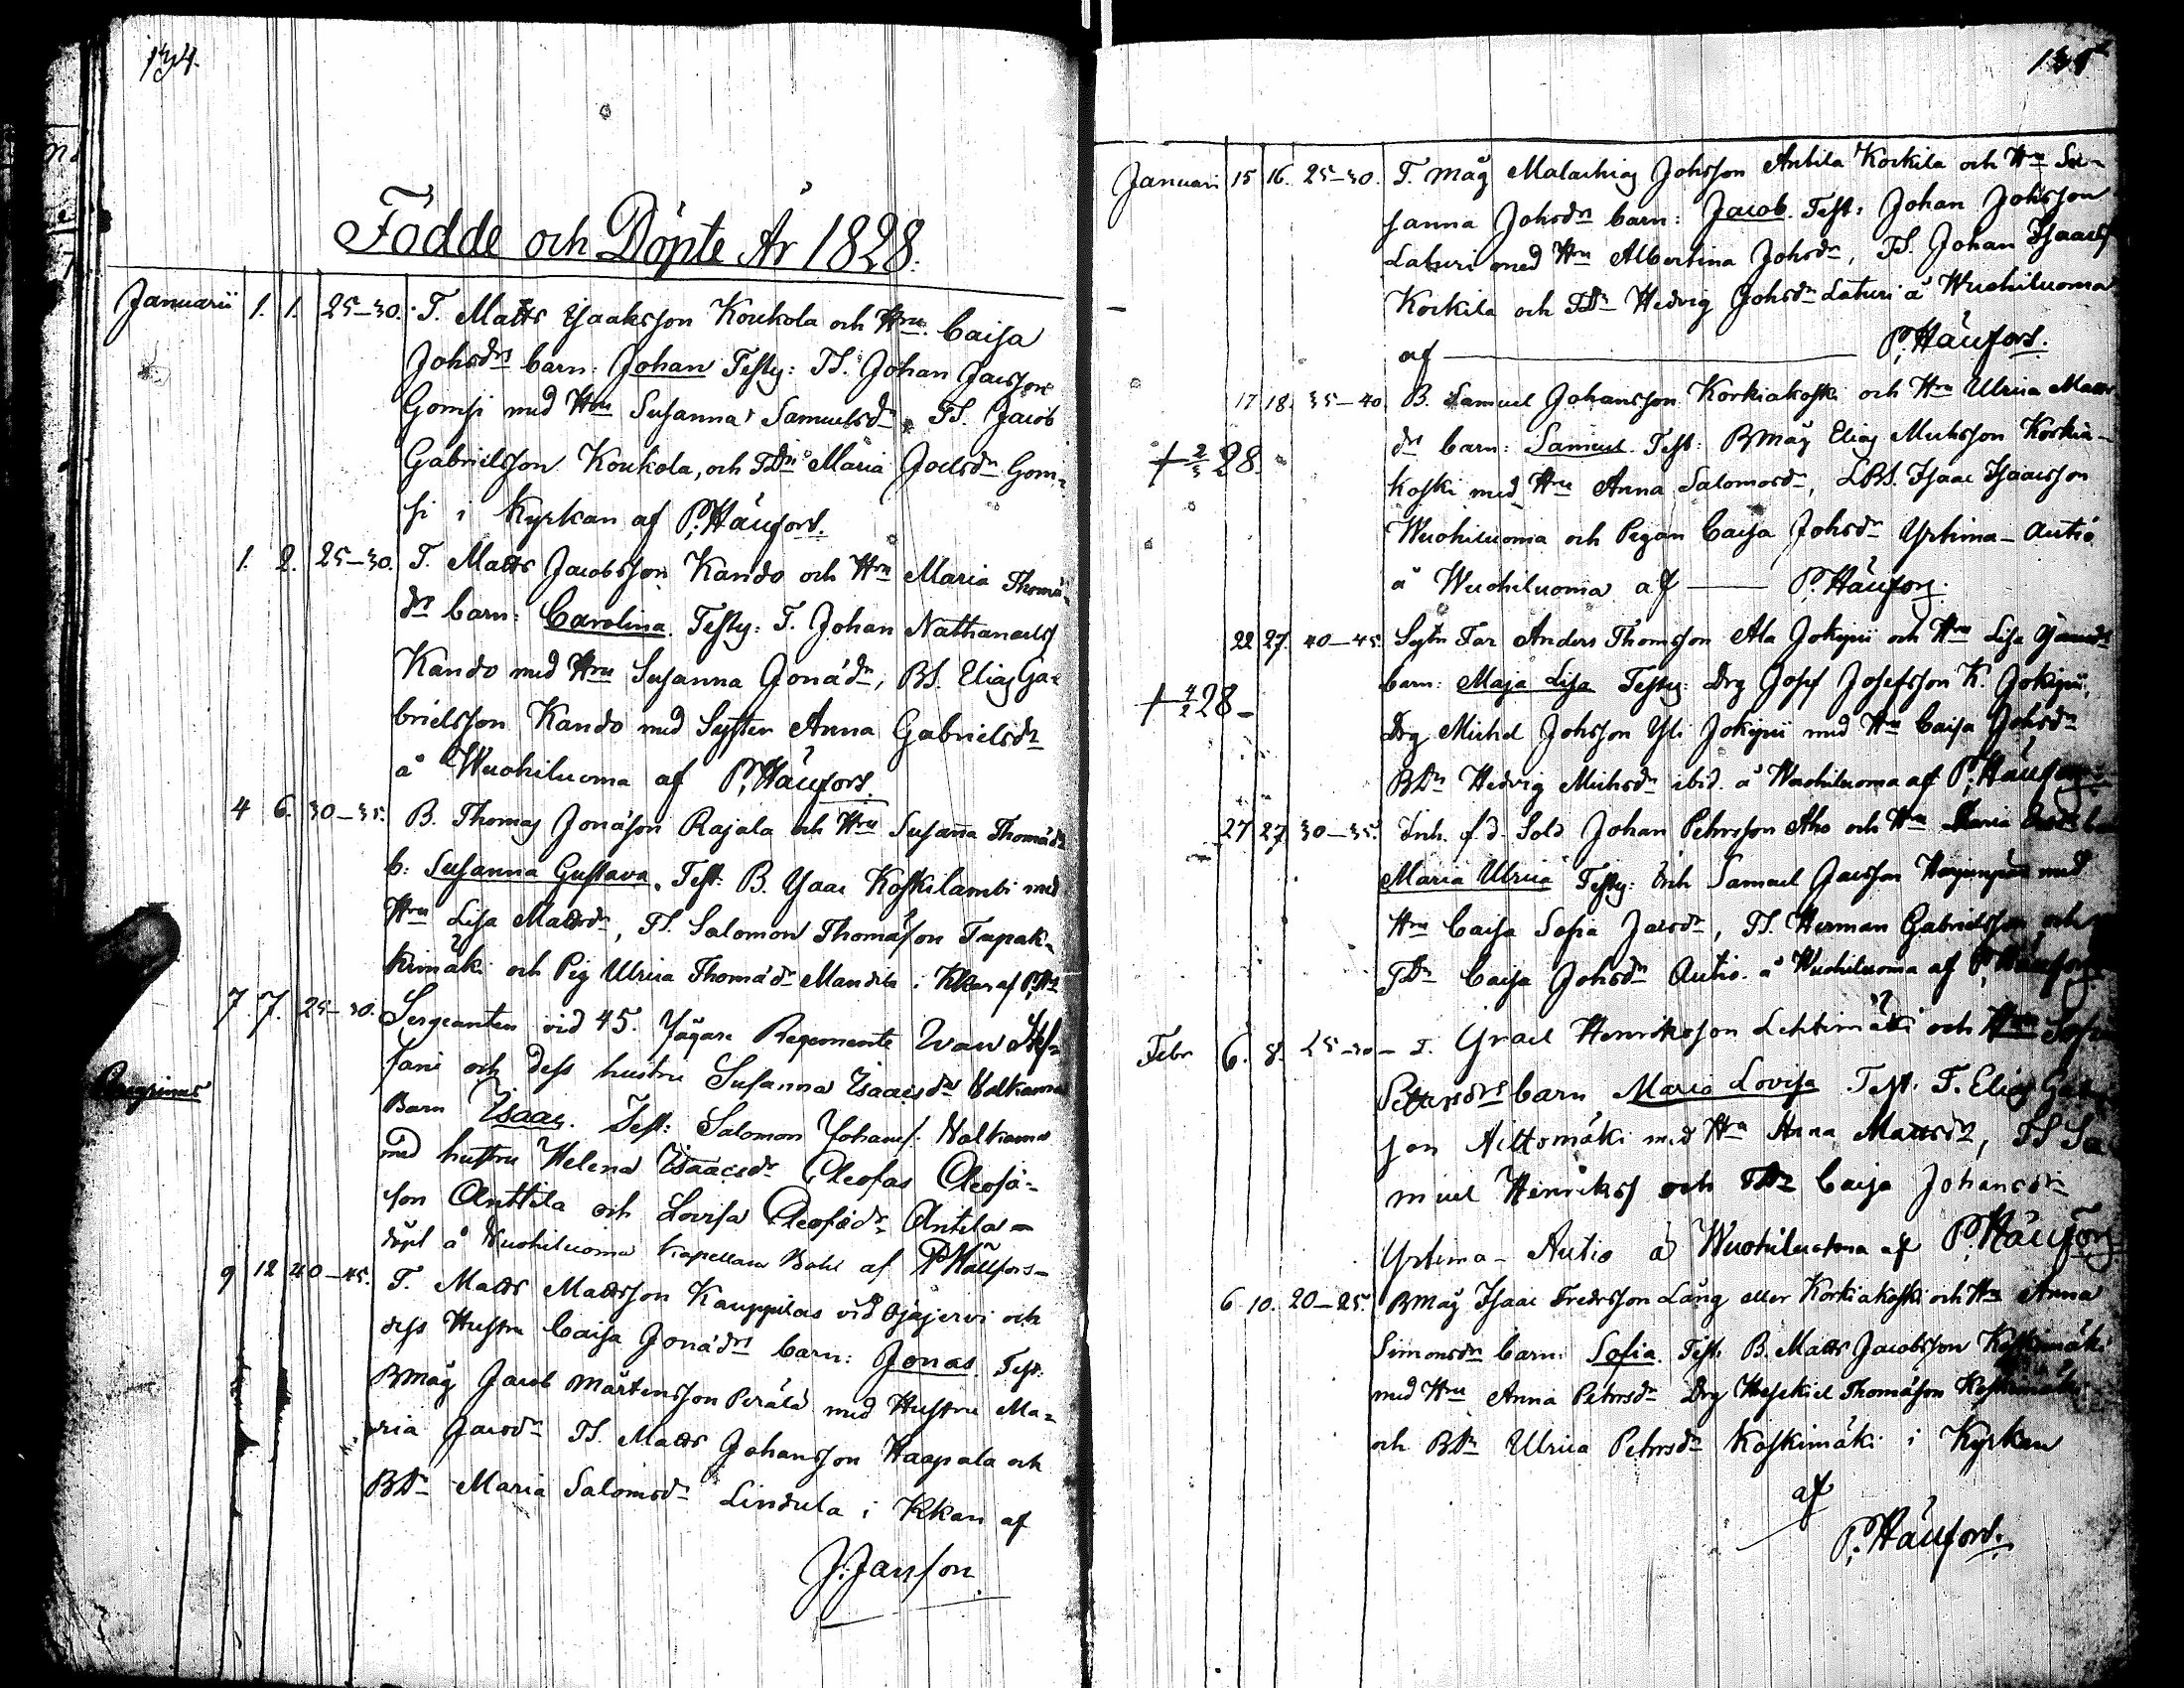 134.
Födde och Döpte År 1828.
Januarii 1. 1. 25-30. T. Matts Isaaksson Koukola och Hru. Caisa
Johsdrs barn: Johan Testg: TS. Johan Jacsson
Gomsi med Hru Susanna Samuelsdr TS. Jacob
Gabrielsson Koukola, och TDr Maria Joelsdr Gom-
si i Kyrkan af P. Häufors.
1. 2. 25-30. T. Matts Jacobsson Kando och Hru Maria Thomä
drs barn: Carolina. Testg: T. Johan Nathanaels
Kando med Hru Susanna Jonädr, BS. Elias Ga-
brielsson Kando med Syster Anna Gabrielsdr
å Wuohiluoma af P. Häufors.
4 6. 30-35. B. Thomas Jonäson Rajala och Hru Susanna Thomädr
b: Susanna Gustava. Test: B. Isaac Koskilambi med
Hru Lisa Mattsdr, TS. Salomon Thomäson Tupak-
kimäki och Pig Ulrica Thomädr Mandila i Kkan af
7. 7. 25-30. Sergeanten vid 45. Jägare Regemente Iwan Stef-
fani och dess hustru Susanna Isaacsdr
Barn Isaac. Test: Salomon Johans. Valkama
med hustru Helena Isaacsdr Cleofas Cleofä-
son Anttila och Lovisa Cleofädr Antila
döpt å Wuohiluoma Kapellans Bohl af P. Häufors
9 12 40-45. T. Matts Mattsson Kauppilas vid och
dess Hustru Caisa Jonädrs barn: Jonas. Test:
BMåg Jacob Mårtensson Perälä med Hustru Ma-
ria Jacsdr TS. Matts Johansson Haapala och
BDr Maria Salomsdr Lindula i Kkan af
J. Janson.
135
Januari 15 16. 25-30. T. Måg Malachias Johsson Antila Korkila och Hru Su-
sanna Johsdrs barn: Jacob. Test: Johan Johsson
Laturi med Hru Albertina Johsdr, TS. Johan Isaacs
Korkila och TDr Hedvig Johsdr Laturi å Wuohiluoma
af P. Häufors.
17 18. 35-40. B. Samuel Johansson Korkiakoski och Hru Ulrica Matts
drs barn: Samuel. Test: BMåg Elias Michsson Korkia-
+ 28. koski med Hru Anna Salomosdr, Isaac Isaacsson
Wuohiluoma och Pigan Caisa Johsdr Yrtima-Autio
å Wuohiluoma af P. Häufors.
22 27. 40-45. Anders Thomsson Ala Jokipii och Hru Lisa
barn: Maja Lisa Testg: Drg Josef Josefsson K. Jokipii,
+ 4/2 28- Drg Michel Johsson Yli Jokipii med Hru Caisa Johsdr
BDr Hedvig Michsdr ibid. å Wuohiluoma af P. Häufors
27 27 30-35. Inh. f.d. Sold Johan Pehrsson Aho och Hru
Maria Ulrica Testg: Inh Samuel Jacsson med
Hru Caisa Sofia Jacsdr, TS. Herman Gabrielsson och
TDr Caisa Johsdr Autio å Wuohiluoma af P. Häufors
Febr 6. 8. 25-30 T. Israel Henriksson Lehtimäki och Hru
Pettersdrs barn Maria Lovisa Test: T. Elias
son Aittomäki med Hru Anna Mattsdr, TS Sa
muel Henrikss och TDr Caisa Johansdr
Yrtima-Autio å Wuohiluoma af P. Häufors
6 10. 20-25. BMåg Isaac Fredrsson Lång eller Korkiakoski och Hru Anna
Simonsdrs barn: Sofia. Test: B. Matts Jacobsson Koskimäki
med Hru Anna Pehrsdr Drg Heskiel Thomäson Koskimäki
och BDr Ulrica Pehrsdr Koskimäki i Kyrkan
af
P. Häufors.